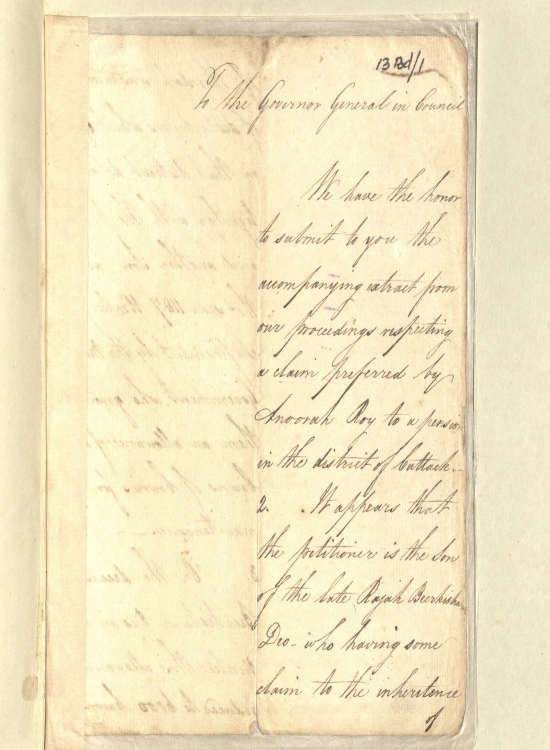 13 Bd/1
To the Governor General in Council
We have the honor
to submit to you the
accompanying extract from
our proceedings respecting
a claim preferred by
Anoorah Roy to a pension
in the district of Cuttack.–
2. It appears that
the petitioner is the son
of the late Rajah Beerkishor
Deo – who having some
claim to the inheritence
of